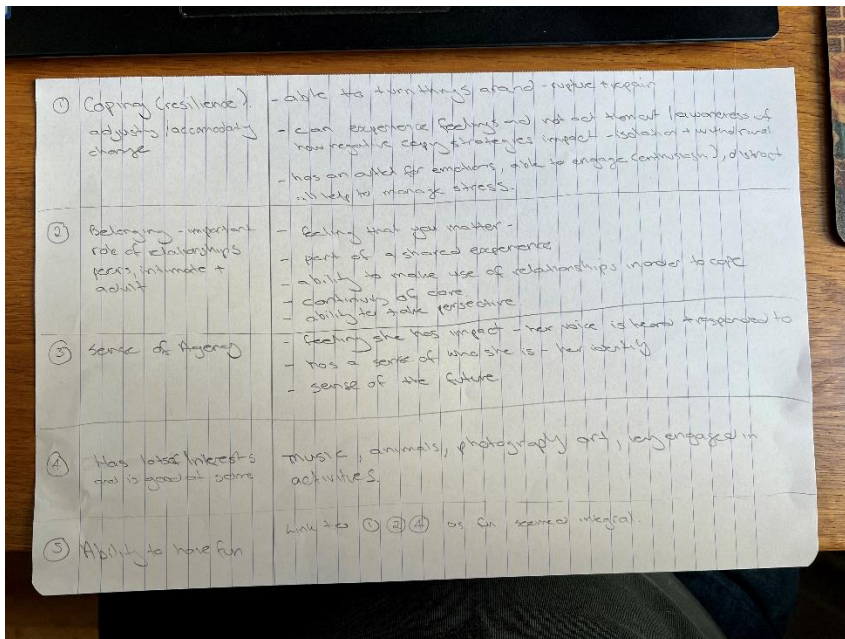 ① Coping (resilience).
adjusting / accomodating
change
- able to turn things around - rupture + repair
- can experience feelings and not act them out (awareness of
how negative coping strategies impact - isolation + withdrawal
- has an outlet for emotions, able to engage (enthusiasm), distract
... help to manage stress.
② Belonging - important
role of relationships
peers, intimate +
adult
- feeling that you matter -
- part of a shared experience
- ability to make use of relationships in order to cope
- continuity of care
- ability to take perspective
③ Sense of Agency
- feeling she has impact - her voice is heard + responded to
- has a sense of who she is - her identity
- sense of the future
④ Has lots of Interests
and is good at some
music, animals, photography art, very engaged in
activities.
⑤ Ability to have fun
Link to ① ② ④ as fun seemed integral.